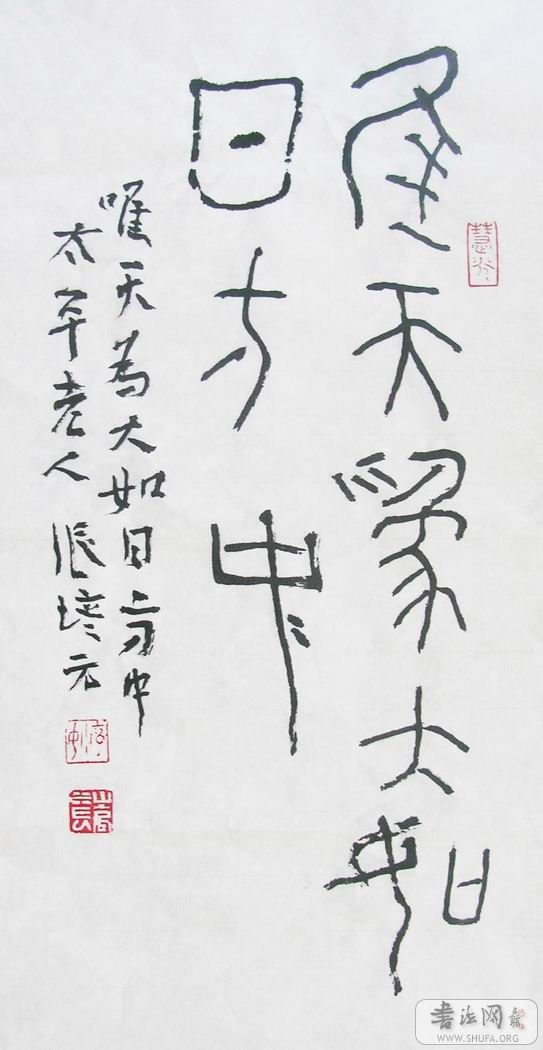 唯天為大如
日方中
唯天為大如日方中
太平老人張培元
書法网
WWW.SHUFA.ORG